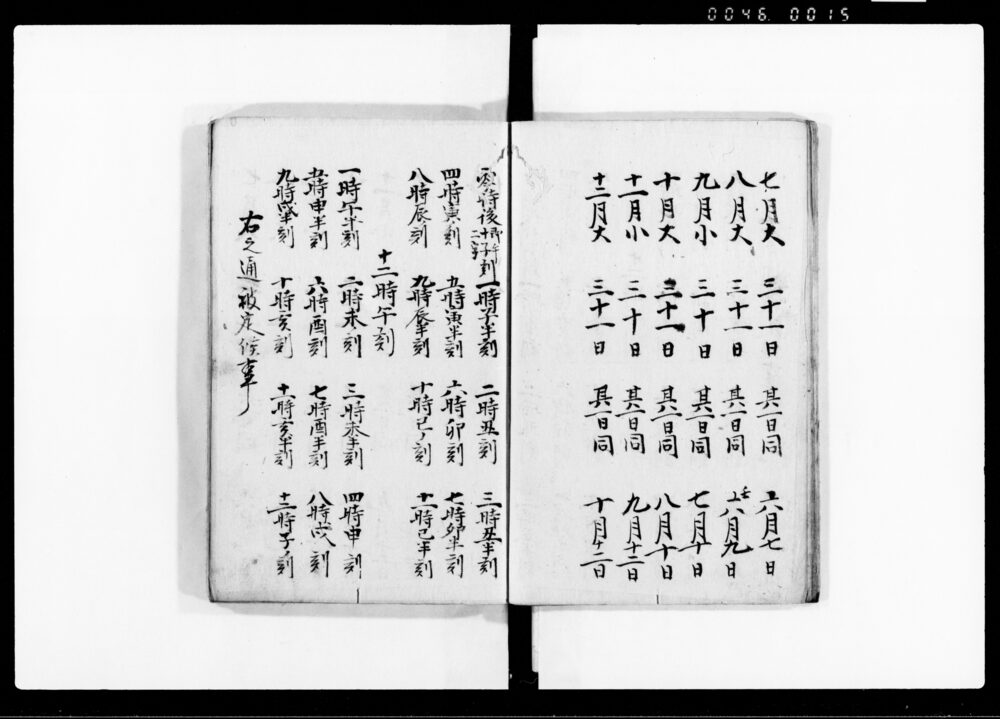 0046. 0015
七月大 三十一日 其一日同 六月七日
八月大 三十一日 其一日同 六月九日
九月小 三十日 其一日同 七月十日
十月大 三十一日 其一日同 八月十日
十一月小 三十日 其一日同 九月十二日
十二月大 三十一日 其一日同 十月十二日
時後 子刻 一時子半刻 二時丑ノ刻 三時丑半刻
四時寅ノ刻 五時寅半刻 六時卯ノ刻 七時卯半刻
八時辰ノ刻 九時辰半刻 十時巳ノ刻 十一時巳半刻
十二時午ノ刻
一時午半刻 二時未ノ刻 三時未半刻 四時申ノ刻
五時申半刻 六時酉ノ刻 七時酉半刻 八時戌ノ刻
九時戌半刻 十時亥ノ刻 十一時亥半刻 十二時子ノ刻
右之通被定候事